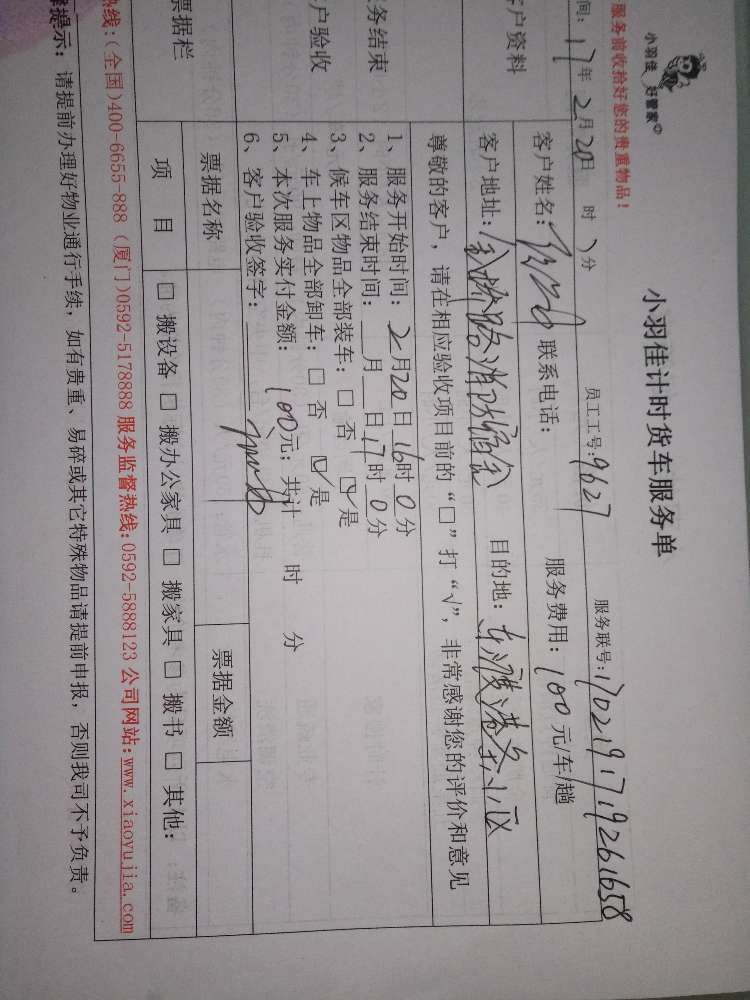 小羽佳 好管家
小羽佳计时货车服务单
服务前收拾好您的贵重物品！
间：17年2月20日 时 分 员工工号：9627 服务联号：1702191719261658
客户资料
客户姓名： 联系电话： 服务费用：100元/车/趟
客户地址： 路消防宿舍 目的地： 小区
尊敬的客户，请在相应验收项目前的“□”打“√”，非常感谢您的评价和意见
务结束
户验收
1、服务开始时间：2月20日16时0分
2、服务结束时间：__月__日17时0分
3、候车区物品全部装车：□ 否 ☑是
4、车上物品全部卸车：□ 否 ☑是
5、本次服务实付金额：100元；共计 时 分
6、客户验收签字：
票据栏
票据名称 票据金额
项 目 □ 搬设备 □ 搬办公家具 □ 搬家具 □ 搬书 □ 其他：
热线：(全国)400-6655-888 (厦门)0592-5178888 服务监督热线：0592-5888123 公司网站：www.xiaoyujia.com
提示：请提前办理好物业通行手续，如有贵重、易碎或其它特殊物品请提前申报，否则我司不予负责。